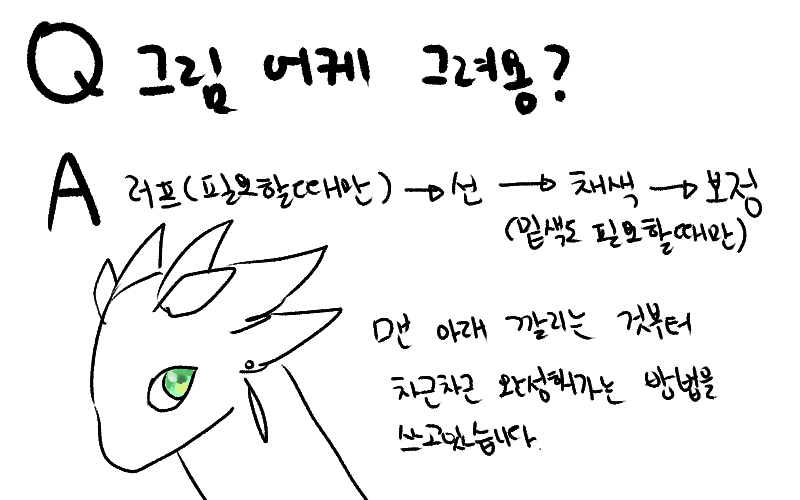 Q 그림 어케 그려용?
A 러프(필요할때만) → 선 → 채색 → 보정
(밑색도 필요할때만)
맨 아래 깔리는 것부터
차근차근 완성해가는 방법을
쓰고있습니다.